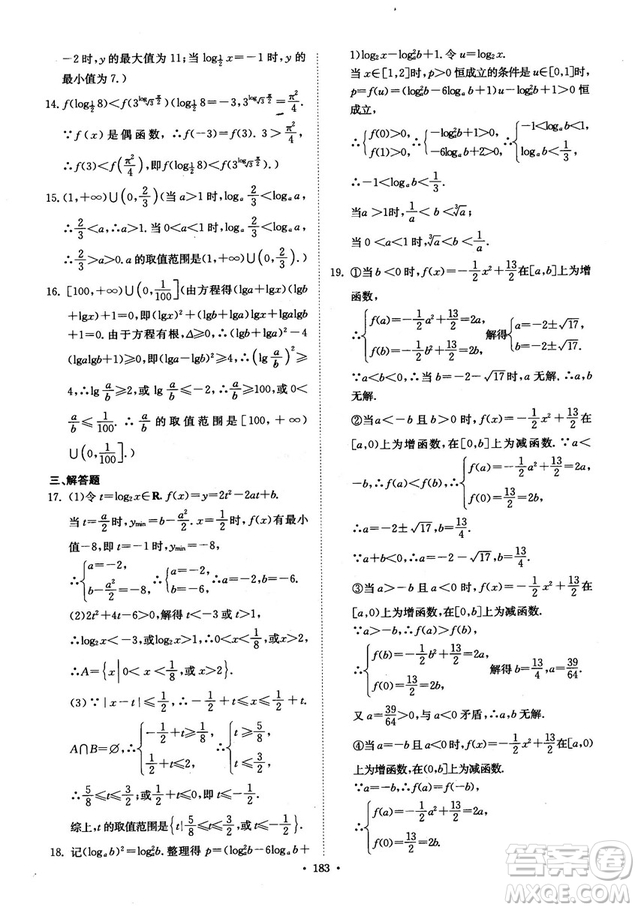 -2时,y的最大值为11;当 log_{1/2} x=-1时,y的
最小值为7.)
14. f(log_{1/2} 8)<f(3^{log_{√3} π/2})(log_{1/2} 8=-3,3^{log_{√3} π/2}=π²/4.
∵f(x)是偶函数,∴f(-3)=f(3).3>π²/4.
∴f(3)<f(π²/4).)
15. (1,+∞)∪(0,2/3)(当a>1时,log_a 2/3<log_a a,
∴2/3<a,∴a>1.当0<a<1时,log_a 2/3<log_a a,
∴2/3>a>0.a的取值范围是(1,+∞)∪(0,2/3).)
16. [100,+∞)∪(0,1/100](由方程得(lga+lgx)(lgb+
lgx)+1=0,即(lgx)²+(lga+lgb)lgx+lgalgb
+1=0.由于方程有根,Δ≥0,∴(lga+lgb)²-4
(lgalgb+1)≥0,即(lga-lgb)²≥4,∴(lg a/b)²≥
4,∴lg a/b≥2或 lg a/b≤-2,∴a/b≥100或0<
a/b≤1/100.∴a/b的取值范围是[100,+∞)
∪(0,1/100].)
三、解答题
17. (1)令t=log₂x∈R.f(x)=y=2t²-2at+b.
当t=a/2时,y_min=b-a²/2.又t=1/2时,f(x)有最小
值-8,即t=-1时,y_min=-8.
∴{a=-2, b-a²/2=-8 ∴{a=-2, b=-6. ∴a=-2,b=-6.
(2)2t²+4t-6>0,解得t>1或t<-3.
∴log₂x>1或log₂x<-3.∴x>2或0<x<1/8.
∴A={x|0<x<1/8或x>2}.
(3)∵|x-t|≤1/2,∴-1/2+t≤x≤1/2+t.
A∩B=∅,∴{-1/2+t≥1/8, 1/2+t≤2 ∴{t≥5/8, t≤3/2.
∴5/8≤t≤3/2.
综上,t的取值范围是{t|5/8≤t≤3/2}.
18. 记(log_a b)²=log_a²b.整理得p=(log₂²b-6log_a b+
1)log₂x-log_a²b+1.令u=log₂x.
当x∈[1,2]时,p>0恒成立的条件是u∈[0,1]时,
p=f(u)=(log_a²b-6log_a b+1)u-log_a²b+1>0恒
成立,∴{f(0)>0, f(1)>0 ∴{-1<log_a b<1, log_a b<1/3.
∴-1<log_a b<1/3.
当a>1时,1/a<b<∛a;
当0<a<1时,∛a<b<1/a.
19. ①当b<0时,f(x)=-1/2x²+13/2在[a,b]上为增
函数,
∴{f(a)=-1/2a²+13/2=2a, f(b)=-1/2b²+13/2=2b, 解得{a=-2±√17, b=-2±√17.
∵a<b<0,∴b=-2-√17,a无解.∴a,b无解.
②当a<0<b且a<-b时,f(x)=-1/2x²+13/2在
[a,0)上为增函数,在[0,b]上为减函数.∵a<
-b,∴{f(a)=-1/2a²+13/2=2a, f(0)=13/2=2b, ∴b=13/4,
∴a=-2±√17,∵a<0,∴a=-2-√17.
∵a+b<0,∴a=-2-√17,b=13/4.
③当a<0<b且a>-b时,f(x)=-1/2x²+13/2在
[a,0)上为增函数,在[0,b]上为减函数.
∵a>-b,
∴{f(b)=-1/2b²+13/2=2a, f(0)=13/2=2b, 解得b=13/4,a=39/64.
又a=39/64与a<0矛盾,∴a,b无解.
④当a<0<b且a=-b时,f(x)=-1/2x²+13/2在[a,
0)上为增函数,在[0,b]上为减函数.
∵a=-b,∴{f(a)=-1/2a²+13/2=2a, f(0)=13/2=2b,
∴{f(b)=-1/2b²+13/2=2a, f(0)=13/2=2b.
• 183 •
答案圈
MXQE.COM